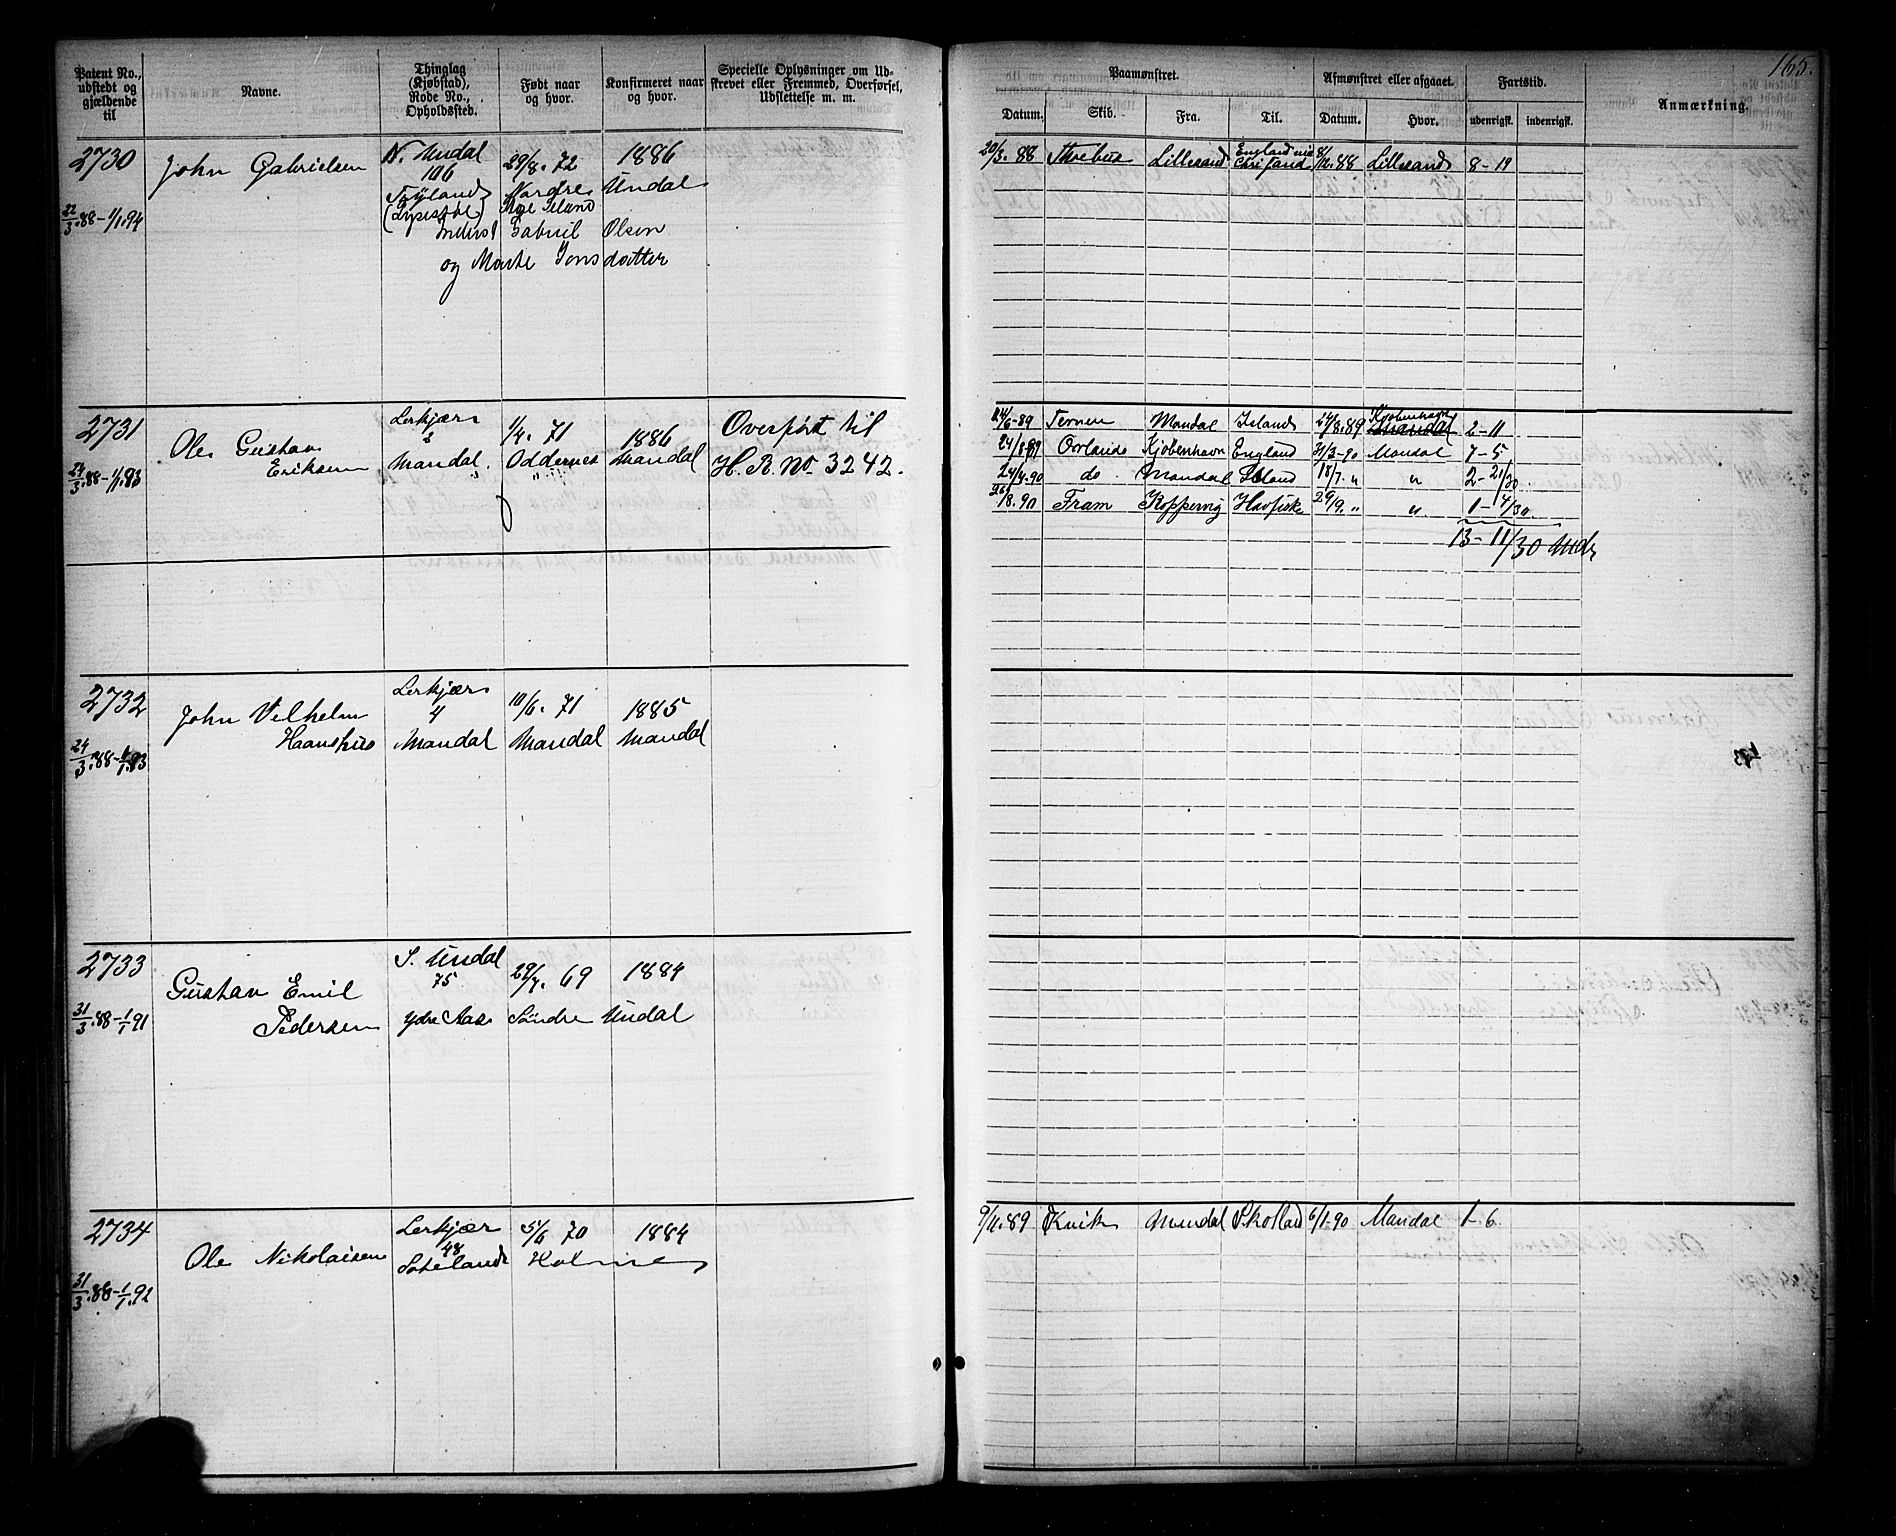 Patent No., udstedt og gjældende til
Navne.
Thinglag (Kjøbstad), Rode No., Opholdssted.
Født naar og hvor.
Konfirmeret naar og hvor.
Specielle Oplysninger om Udskrevet eller Fremmed, Overførsel, Udslettelse m. m.
165.
Paamønstret.
Afmønstret eller afgaaet.
Fartstid.
Anmærkning.
Datum.
Skib.
Fra.
Til.
Datum.
Hvor.
udenrigsk.
indenrigsk.
2730
22/3.88-1/1.94
John Gabrielsen
N. Undal
106
29/8.72
Nordre Undal
1886
Gabriel Olsen
og Marte Jonsdatter
20/3.88 Lillesand England Lillesand 8-19
2731
24/3.88-1/1.93
Ole Gustav
Eriksen
Lerkjær
2
Mandal.
1/4.71
Oddernes
1886
Mandal
Overført til
H. R. No 3242.
24/6-89 Ternen Mandal Island 24/8.89 Kjøbenhavn Mandal 2-11
24/8.89 Kjøbenhavn England 31/3-90 Mandal 7-5
24/4.90 do. Mandal Island 18/7. " " 2-21/30
26/8.90 Fram Koppervig Havfiske 29/9. " " 1-4/30.
13-11/30 Mdr
2732
24/3.88-1/1.93
John Vilhelm
Haanshus
Lerkjær
4
Mandal
10/6.71
Mandal
1885
Mandal
2733
31/3.88-1/1.91
Gustav Emil
Pedersen
S. Undal
75
ydre Aas
29/7.69
Søndre Undal
1884
2734
31/3.88-1/1.92
Ole Nikolaisen
Lerkjær
48
5/6 70
Holme
1884
9/11.89 Kvik Mandal Skotland 6/1-90 Mandal 1-6.